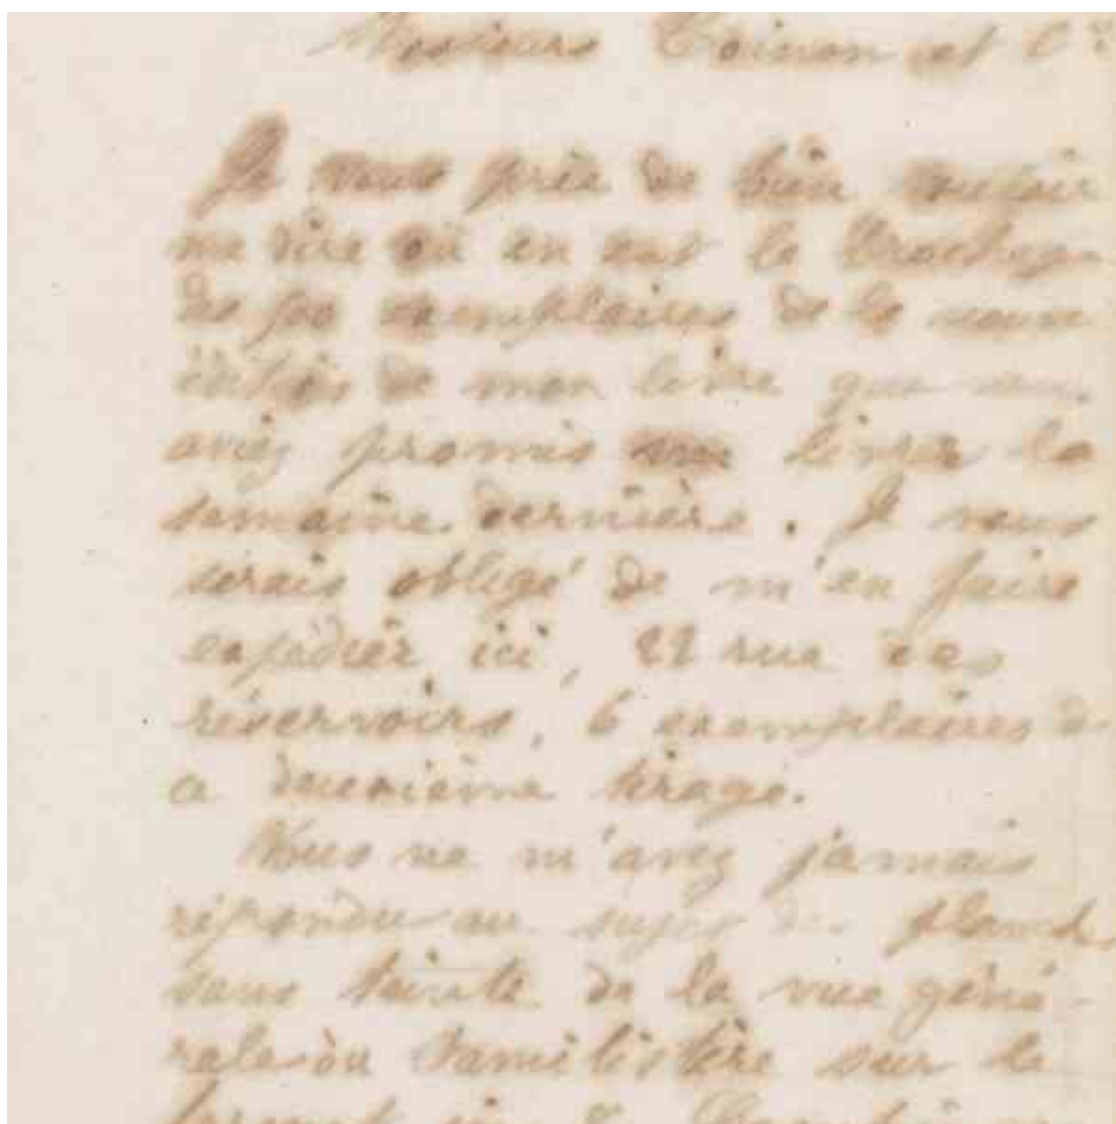 Messieurs Poinon et Cie
Je vous prie de bien vouloir
me dire où en est le brochage
des 500 exemplaires de la
édition de mon livre que vous
aviez promis livrer la
semaine dernière. Je vous
serais obligé de m'en faire
expédier ici, 22 rue des
réservoirs, 6 exemplaires
deuxième tirage.
Vous ne m'avez jamais
répondu au sujet
sans teinte de la vue géné-
rale du Familistère sur le